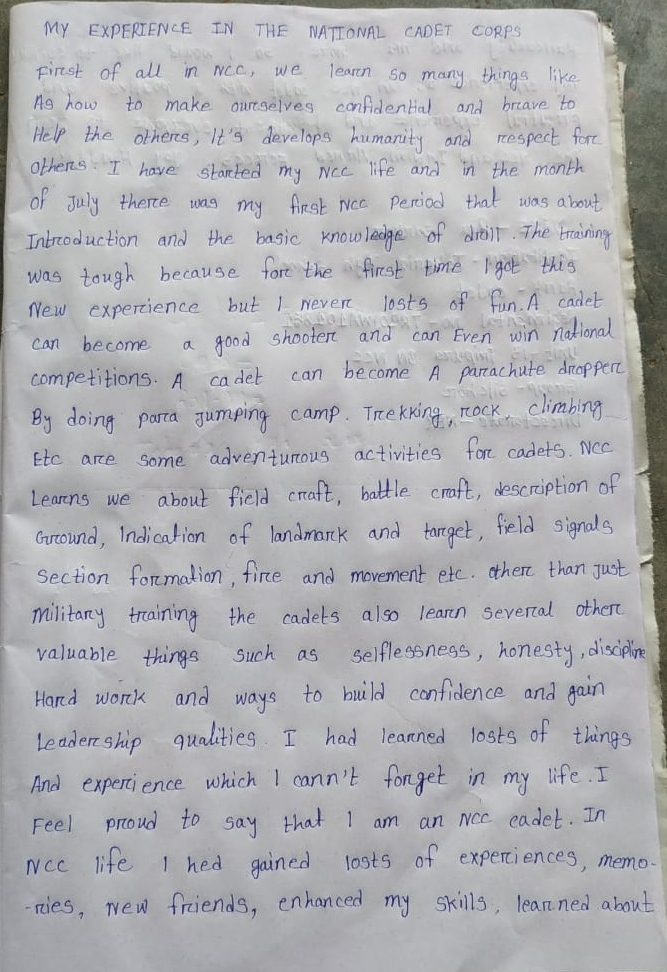 MY EXPERIENCE IN THE NATIONAL CADET CORPS
First of all in NCC, we learn so many things like
As how to make ourselves confidential and brave to
Help the others, It's develops humanity and respect for
others. I have started my NCC life and in the month
of July there was my first NCC Period that was about
Introduction and the basic knowledge of drill. The training
was tough because for the first time I got this
New experience but I never losts of fun. A cadet
can become a good shooter and can Even win national
competitions. A cadet can become A parachute dropper
By doing para Jumping camp. Trekking, rock, climbing
Etc are some adventurous activities for cadets. NCC
Learns we about field craft, battle craft, description of
Ground, Indication of landmark and target, field signals
Section formation, fire and movement etc. other than Just
Military training the cadets also learn several other
valuable things such as selflessness, honesty, discipline
Hard work and ways to build confidence and gain
Leadership qualities. I had learned losts of things
And experience which I cann't forget in my life. I
Feel proud to say that I am an NCC cadet. In
NCC life I hed gained losts of experiences, memo-
-ries, New friends, enhanced my skills, learned about